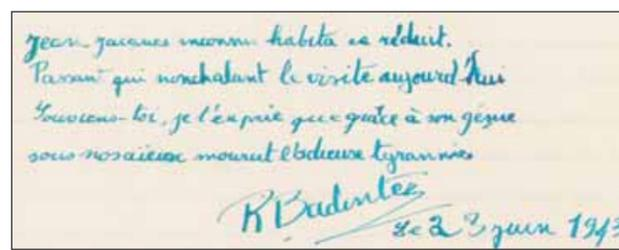 Jean Jacques inconnu habita ce réduit.
Passant qui nonchalant le visite aujourd'hui
Souviens-toi, je t'en prie que grâce à son génie
sous nos aïeux mourut l'odieuse tyrannie
R Badinter
Le 23 juin 1943